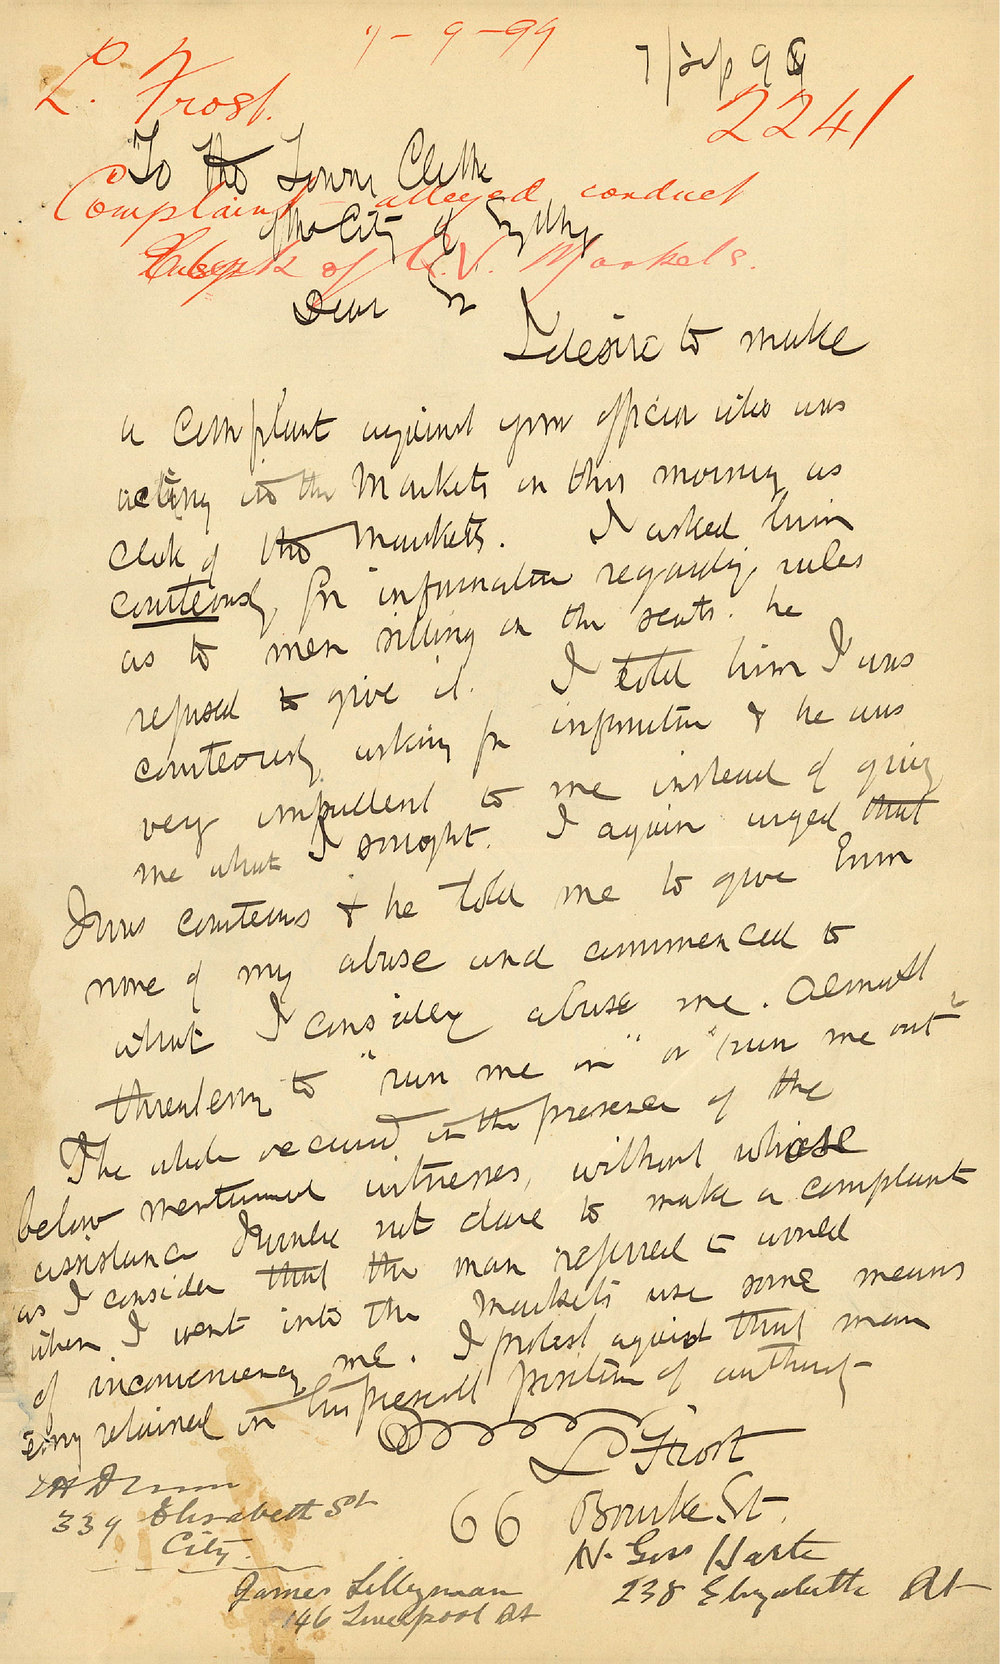 7-9-99
7/Sep 99
L. Frost.
2241
To the Town Clerk
Complaint - alleged conduct
of the City of Sydney
Clerk of Q.V. Markets.
Dear Sir
I desire to make
a complaint against your officer who was
acting in the Markets on this morning as
Clerk of the Markets. I asked him
courteously, for information regarding rules
as to men sitting on the seats. he
refused to give it. I told him I was
courteously asking for information & he was
very impudent to me instead of giving
me what I sought. I again urged that
I was courteous & he told me to give him
none of my abuse and commenced to
what I consider abuse me. Almost
threatening to "run me in" or "run me out"
The whole occurred in the presence of the
below mentioned witnesses, without whose
assistance I would not dare to make a complaint
as I consider that the man referred to would
when I went into the Markets use some means
of inconveniencing me. I protest against that man
being retained in his present position of authority
L Frost
66 Bourke St.
339 Elizabeth St
City.
N. Goss Harte
238 Elizabeth St
James Lilleyman
146 Liverpool St